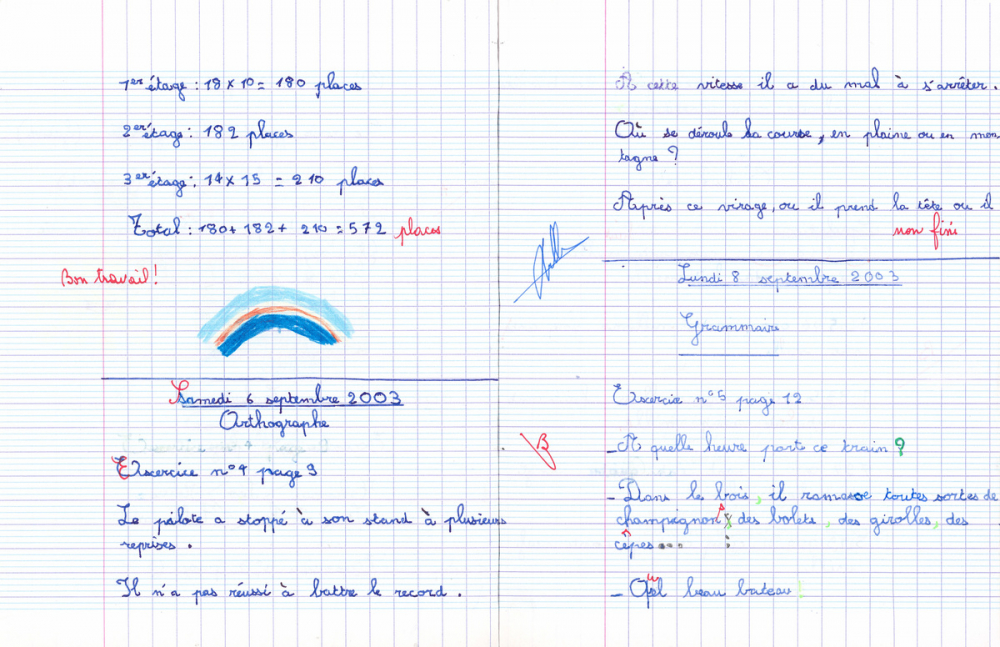 1er étage : 18 x 10 = 180 places
2er étage : 182 places
3er étage : 14 x 15 = 210 places
Total : 180 + 182 + 210 = 572 places
Bon travail !
Samedi 6 septembre 2003
Orthographe
Exercice n°4 page 9
Le pilote a stoppé à son stand à plusieurs
reprises .
Il n'a pas réussi à battre le record .
A cette vitesse il a du mal à s'arrêter .
Où se déroule sa course , en plaine ou en mon
tagne ?
Après ce virage, ou il prend la tête ou il
non fini
Lundi 8 septembre 2003
Grammaire
Exercice n°5 page 12
B
- A quelle heure part ce train ?
- Dans le bois , il ramasse toutes sortes de
champignons : des bolets , des girolles , des
cêpes ...
:
- Quel beau bateau !